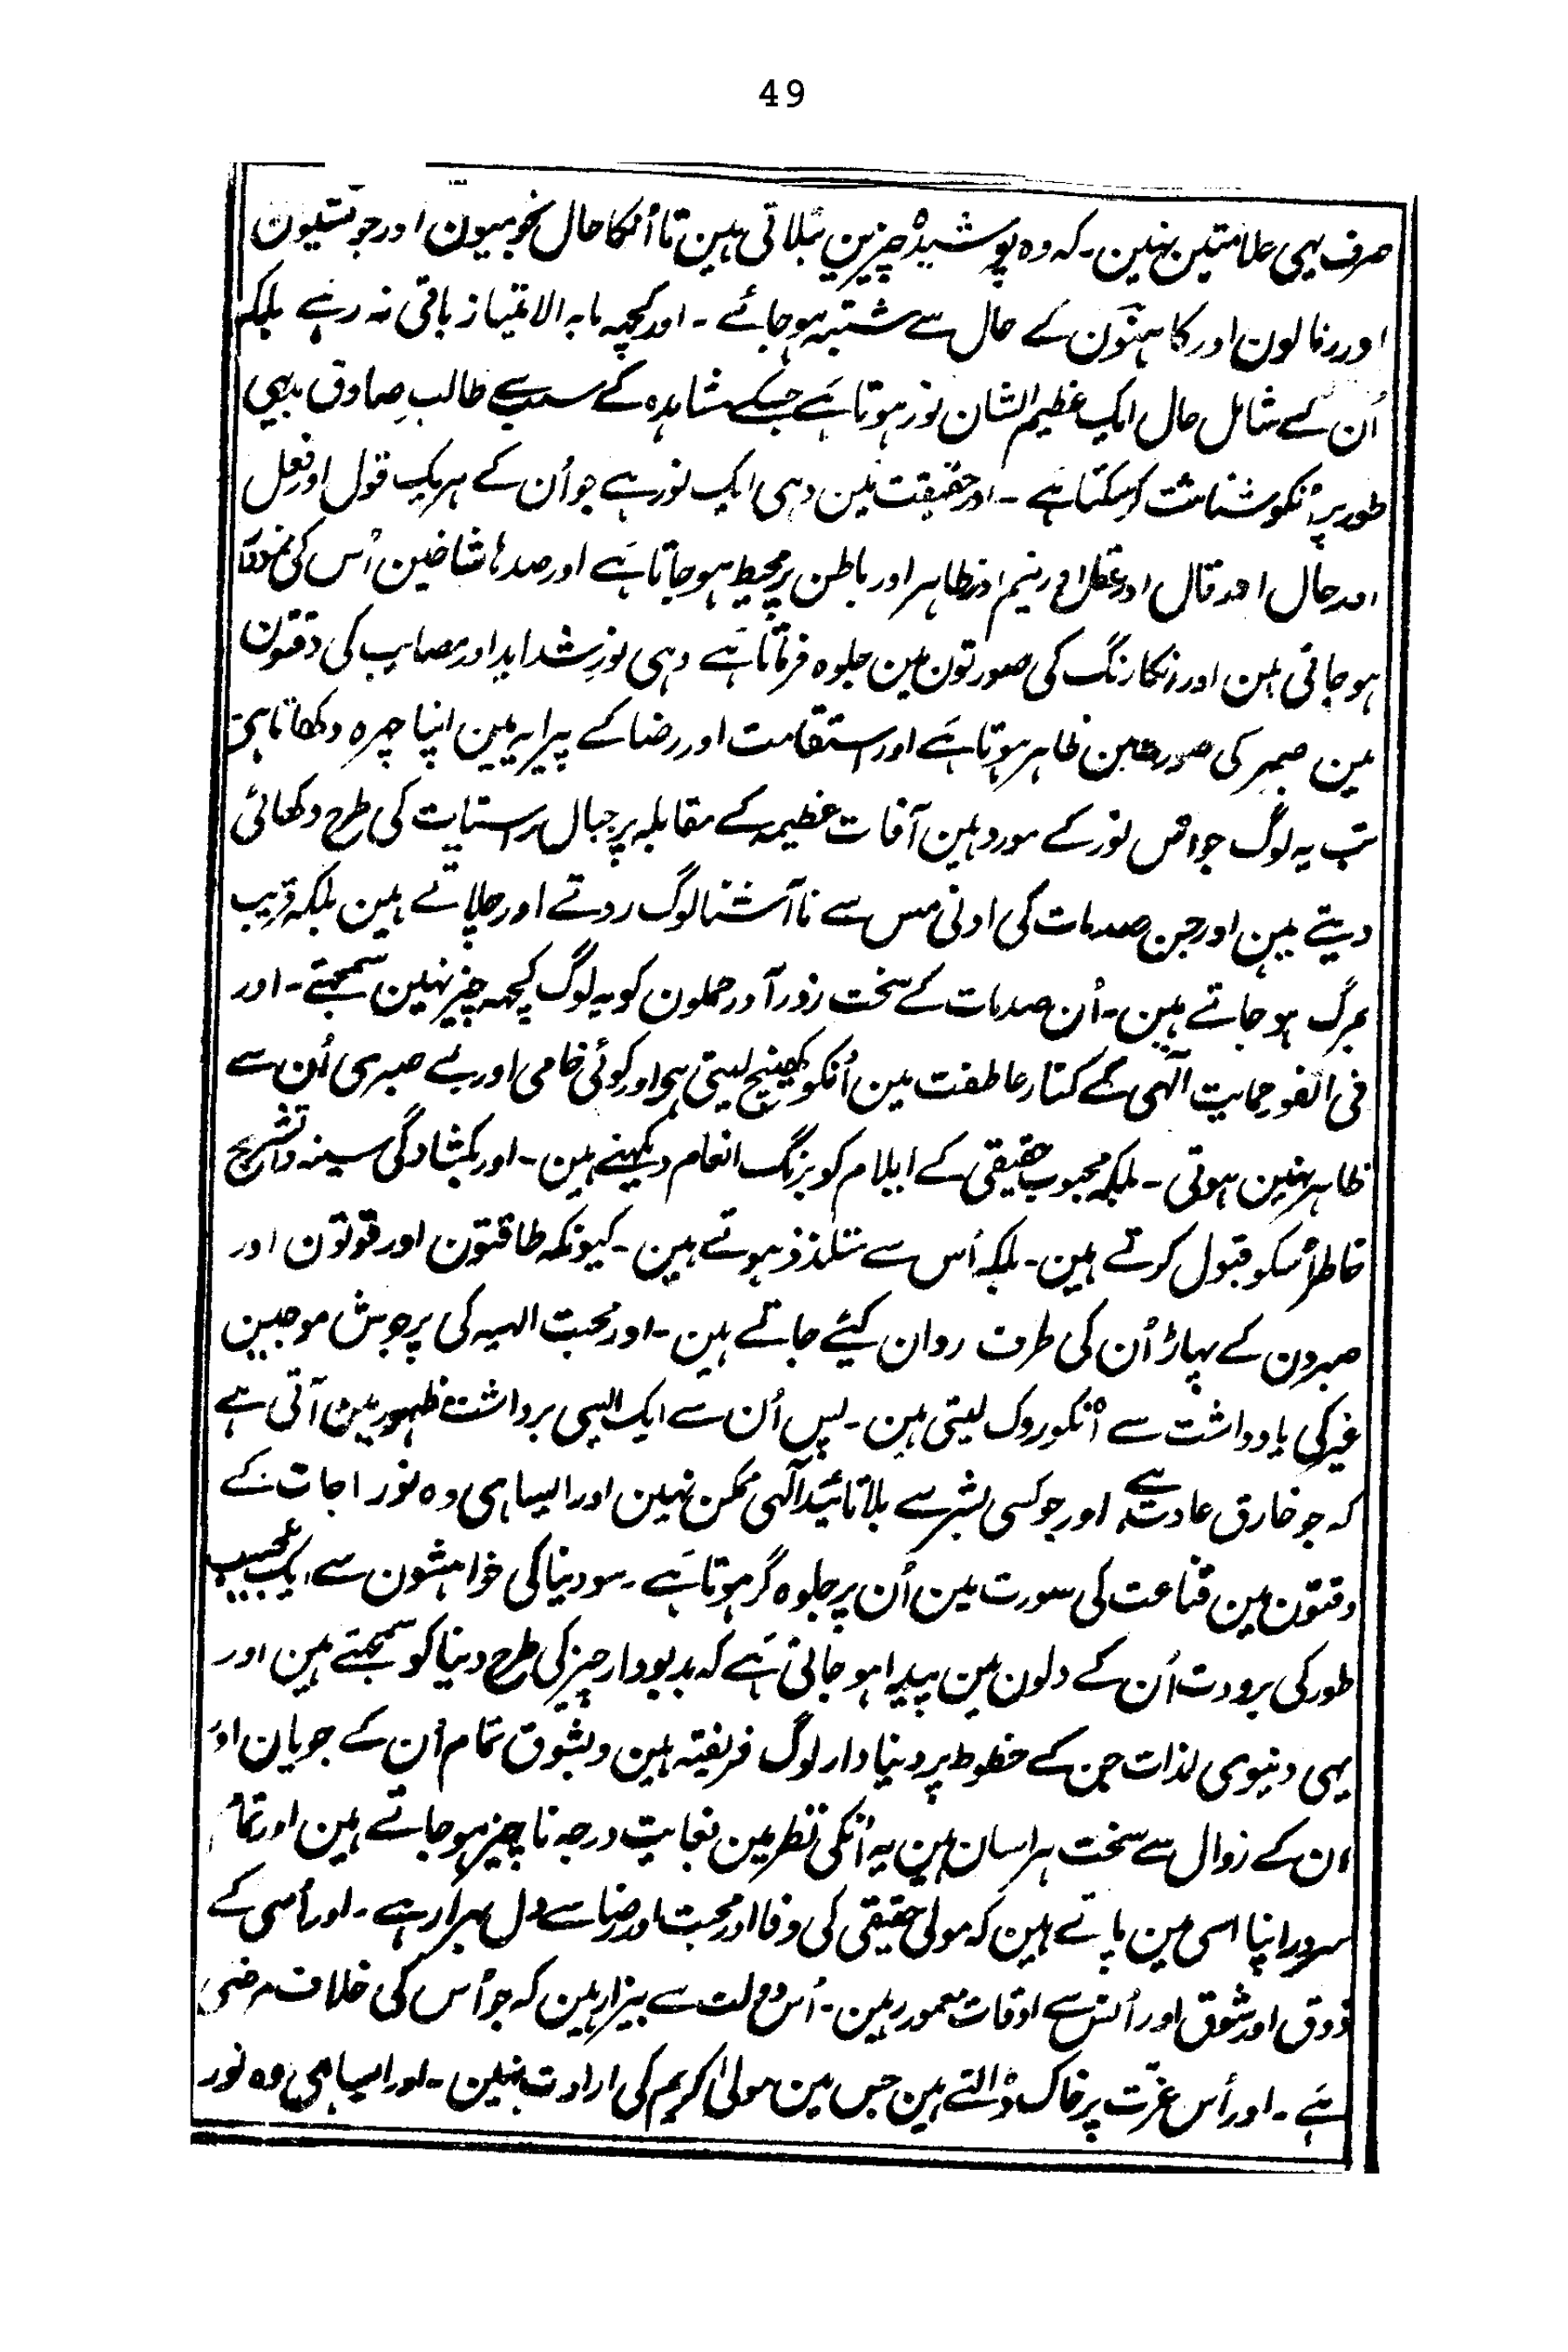 49
صرف یہی علامتیں نہیں۔ کہ وہ پوشیدہ چیزیں بتلاتی ہیں تا اُنکا حال نجومیوں اور جوتشیون
اور رمالون اور کاہنوں کے حال سے مشتبہ ہو جائے۔ اور کچھ مابہ الامتیاز باقی نہ رہے بلکہ
اُن کے شامل حال ایک عظیم الشان نور ہوتا ہے جسکے مشاہدہ کے سبب سے طالبِ صادق بدیہی
طور پر اُنکو شناخت کر سکتا ہے۔ اور حقیقت مین وہی ایک نور ہے جو اُن کے ہریک قول اور فعل
اور حال اور قال اور عقل اور فہم اور ظاہر اور باطن پر محیط ہو جاتا ہے اور صدہا شاخین اُس کی نمودار
ہو جاتی ہین اور رنگارنگ کی صورتون مین جلوہ فرماتا ہے وہی نور شداید اور مصایب کی وقتون
مین صبر کی صورت مین ظاہر ہوتا ہے اور استقامت اور رضا کے پیرایہ مین اپنا چہرہ دکھاتا ہی
تب یہ لوگ جو اس نور کے مورد ہین آفات عظیمہ کے مقابلہ پر جبال راسیات کی طرح دکھائی
دیتے ہین اور جن صدمات کی ادنی مس سے ناآشنا لوگ روتے اور چلاتے ہین بلکہ قریب
بمرگ ہو جاتے ہین۔ اُن صدمات کے سخت زور آور حملون کو یہ لوگ کچھہ چیز نہین سمجھتے۔ اور
فی الفور حمایت الٰہی کے کنار عاطفت مین اُنکو کھینچ لیتی ہی اور کوئی خامی اور بے صبری اُن سے
ظاہر نہین ہوتی۔ بلکہ محبوب حقیقی کے ایلام کو برنگ انعام دیکھتے ہین۔ اور بکشادگی سینہ و انشراح
خاطر اُسکو قبول کرتے ہین۔ بلکہ اُس سے متلذذ ہوتے ہین۔ کیونکہ طاقتون اور قوتون اور
صبرون کے پہاڑ اُن کی طرف روان کیئے جاتے ہین۔ اور محبت الہیہ کی پرجوش موجین
غیر کی یادداشت سے اُنکو روک لیتی ہین۔ پس اُن سے ایک ایسی برداشت ظہور مین آتی ہے
کہ جو خارق عادت ہے اور جو کسی بشر سے بلا تائید الٰہی ممکن نہین اور ایسا ہی وہ نور حاجات کے
وقتون مین قناعت کی صورت مین اُن پر جلوہ گر ہوتا ہے۔ سو دنیا کی خواہشون سے ایک عجیب
طور کی برودت اُن کے دلون مین پیدا ہو جاتی ہے کہ بدبودار چیز کی طرح دنیا کو سمجھتے ہین اور
یہی دنیوی لذات جن کے حظوظ پر دنیا دار لوگ فریفتہ ہین و بشوق تمام اُن کے جویان اور
اُن کے زوال سے سخت ہراسان ہین یہ اُنکی نظر مین بغایت درجہ ناچیز ہو جاتے ہین اور تمام
سرور اپنا اسی مین پاتے ہین کہ مولیٰ حقیقی کی وفا اور محبت اور رضا سے دل بھرا رہے۔ اور اُسی کے
ذوق اور شوق اور اُنس سے اوقات معمور رہین۔ اُس دولت سے بیزار ہین کہ جو اُس کی خلاف مرضی
ہے۔ اور اُس عزت پر خاک ڈالتے ہین جس مین مولیٰ کریم کی ارادت نہین۔ اور ایسا ہی وہ نور